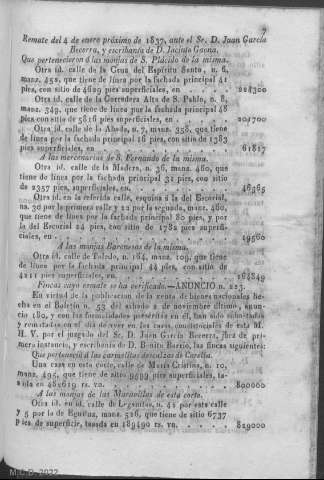 7
Remate del 4 de enero próximo de 1837, ante el Sr. D. Juan García
Becerra, y escribanía de D. Jacinto Gaona.
Que pertenecieron á las monjas de S. Plácido de la misma.
Otra id. calle de la Cruz del Espíritu Santo, n. 6,
manz. 458, que tiene de línea por la fachada principal 41
pies, con sitio de 4609 pies superficiales, en
Otra id. calle de la Corredera Alta de S. Pablo, n. 8,
manz. 349, que tiene de línea por la fachada principal 48
pies con sitio de 5816 pies superficiales, en 204700
Otra id. calle de la Abada, n. 7, manz. 358, que tiene
de línea por la fachada principal 16 pies, con sitio de 1383
pies superficiales, en 61817
A las mercenarias de S. Fernando de la misma.
Otra id. calle de la Madera, n. 36, manz. 460, que
tiene de línea por la fachada principal 32 pies, con sitio
de 2357 pies superficiales, en
Otra id. en la referida calle, esquina á la del Escorial,
n. 30 por la primera calle y 22 por la segunda, manz. 460,
que tiene de línea por la fachada principal 80 pies, y por
la del Escorial 24 pies, con sitio de 1782 pies superfi-
ciales, en 49560
A las monjas Baronesas de la misma.
Otra id. calle de Toledo, n. 164, manz. 109, que tiene
de línea por la fachada principal 44 pies, con sitio de
4211 pies superficiales, en 164849
Fincas cuyo remate se ha verificado.—ANUNCIO n. 223.
En virtud de la publicacion de la venta de bienes nacionales he-
cha en el Boletin n. 53 del sábado 2 de noviembre último, anun-
cio 180, y con las formalidades prescritas en él, han sido subastadas
y rematadas en el dia de ayer en las casas consistoriales de esta M.
H. V. por el juzgado del Sr. D. Juan García Becerra, juez de pri-
mera instancia, y escribanía de D. Benito Barrio, las fincas siguientes:
Que perteneció á las carmelitas descalzas de Cuerba.
Una casa en esta corte, calle de María Cristina, n. 10,
manz. 495, que tiene de sitio 9689 pies superficiales, ta-
sada en 482619 rs. vn. 800000
A las monjas de las Maravillas de esta corte.
Otra id. en id. calle de Leganitos, n. 41 por esta calle
y 5 por la de Eguiluz, manz. 526, que tiene de sitio 6737
pies de superficie, tasada en 189490 rs. vn. 829000
M.C.D. 2022